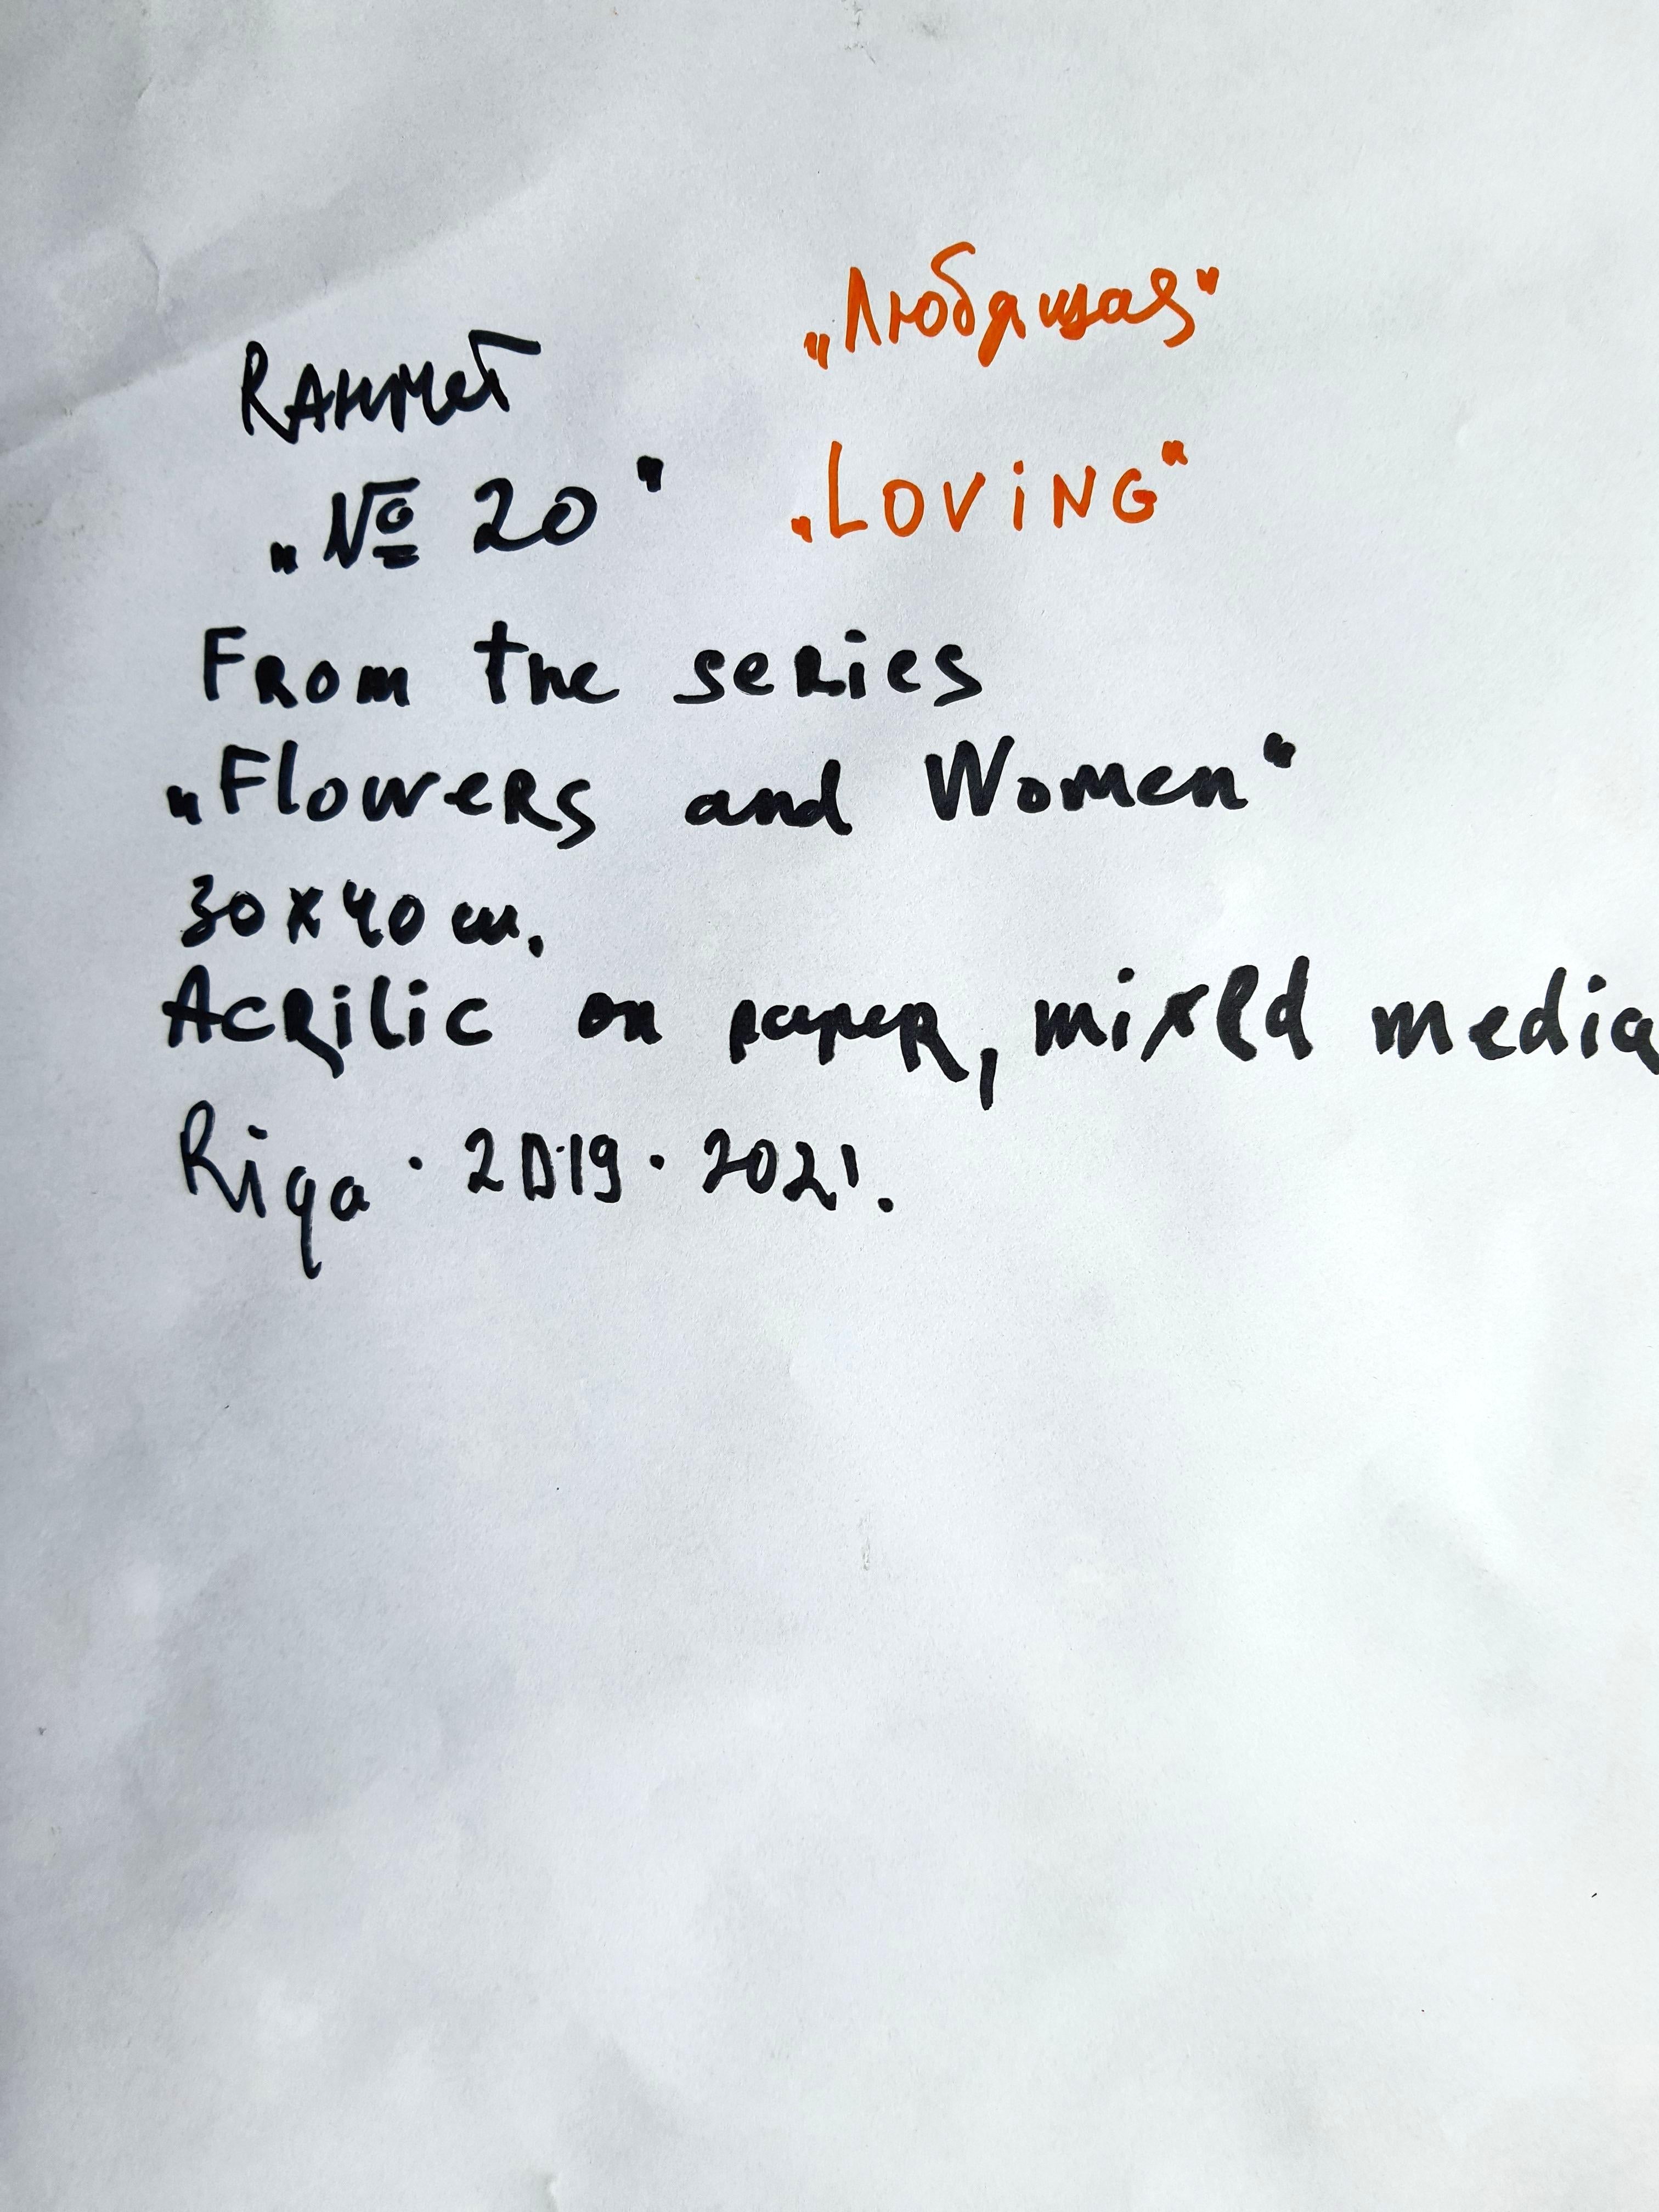 „Любящая"
RAHMET
„LOVING"
„№ 20"
FROM the series
„Flowers and Women"
30x40 cm.
Acrilic on paper, mixed media
Riga · 2019 · 2021.